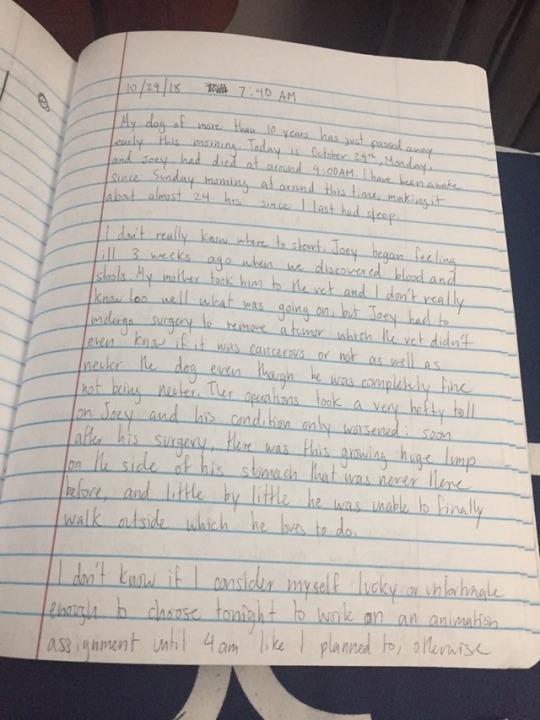 10/29/18 7:40 AM
My dog of more than 10 years has just passed away
early this morning. Today is October 29th, Monday,
and Joey had died at around 4:00AM. I have been awake
since Sunday morning at around this time, making it
about almost 24 hrs since I last had sleep.
I don't really know where to start. Joey began feeling
ill 3 weeks ago when we discovered blood and
stools. My mother took him to the vet and I don't really
know too well what was going on, but Joey had to
undergo surgery to remove a tumor which the vet didn't
even know if it was cancerous or not as well as
neuter the dog even though he was completely fine
not being neuter. The operations took a very hefty toll
on Joey and his condition only worsened: soon
after his surgery, there was this growing huge lump
on the side of his stomach that was never there
before, and little by little he was unable to finally
walk outside which he loves to do.
I don't know if I consider myself lucky or unfortunate
enough to choose tonight to work on an animation
assignment until 4am like I planned to, otherwise